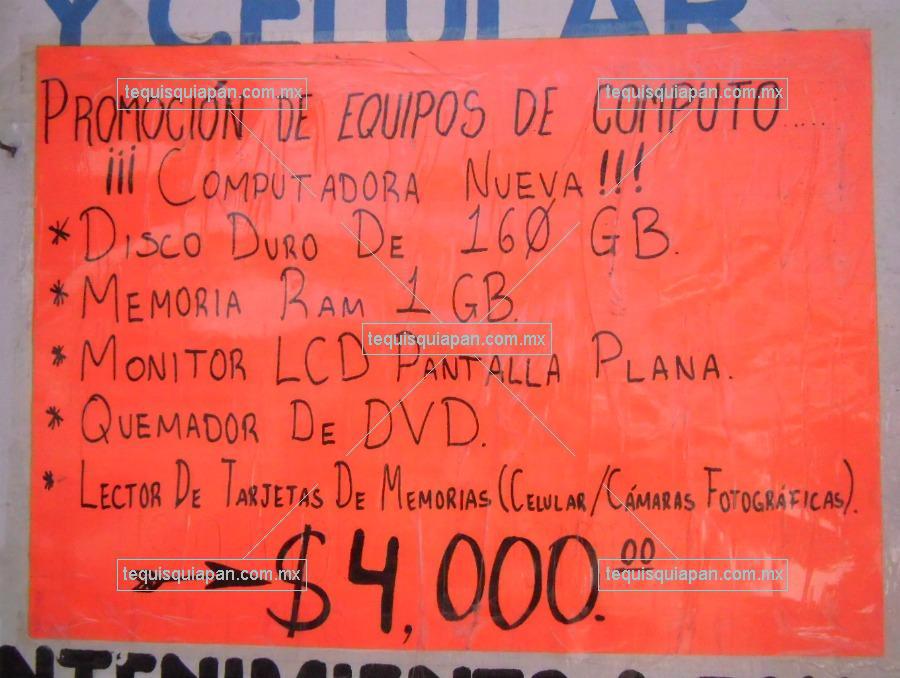 Y CELULAR.
PROMOCIÓN DE EQUIPOS DE COMPUTO.....
¡¡¡ COMPUTADORA NUEVA !!!
* DISCO DURO DE 160 GB.
* MEMORIA RAM 1 GB.
* MONITOR LCD PANTALLA PLANA.
* QUEMADOR DE DVD.
* LECTOR DE TARJETAS DE MEMORIAS (CELULAR/CÁMARAS FOTOGRÁFICAS).
$4,000.00
tequisquiapan.com.mx
tequisquiapan.com.mx
tequisquiapan.com.mx
tequisquiapan.com.mx
tequisquiapan.com.mx